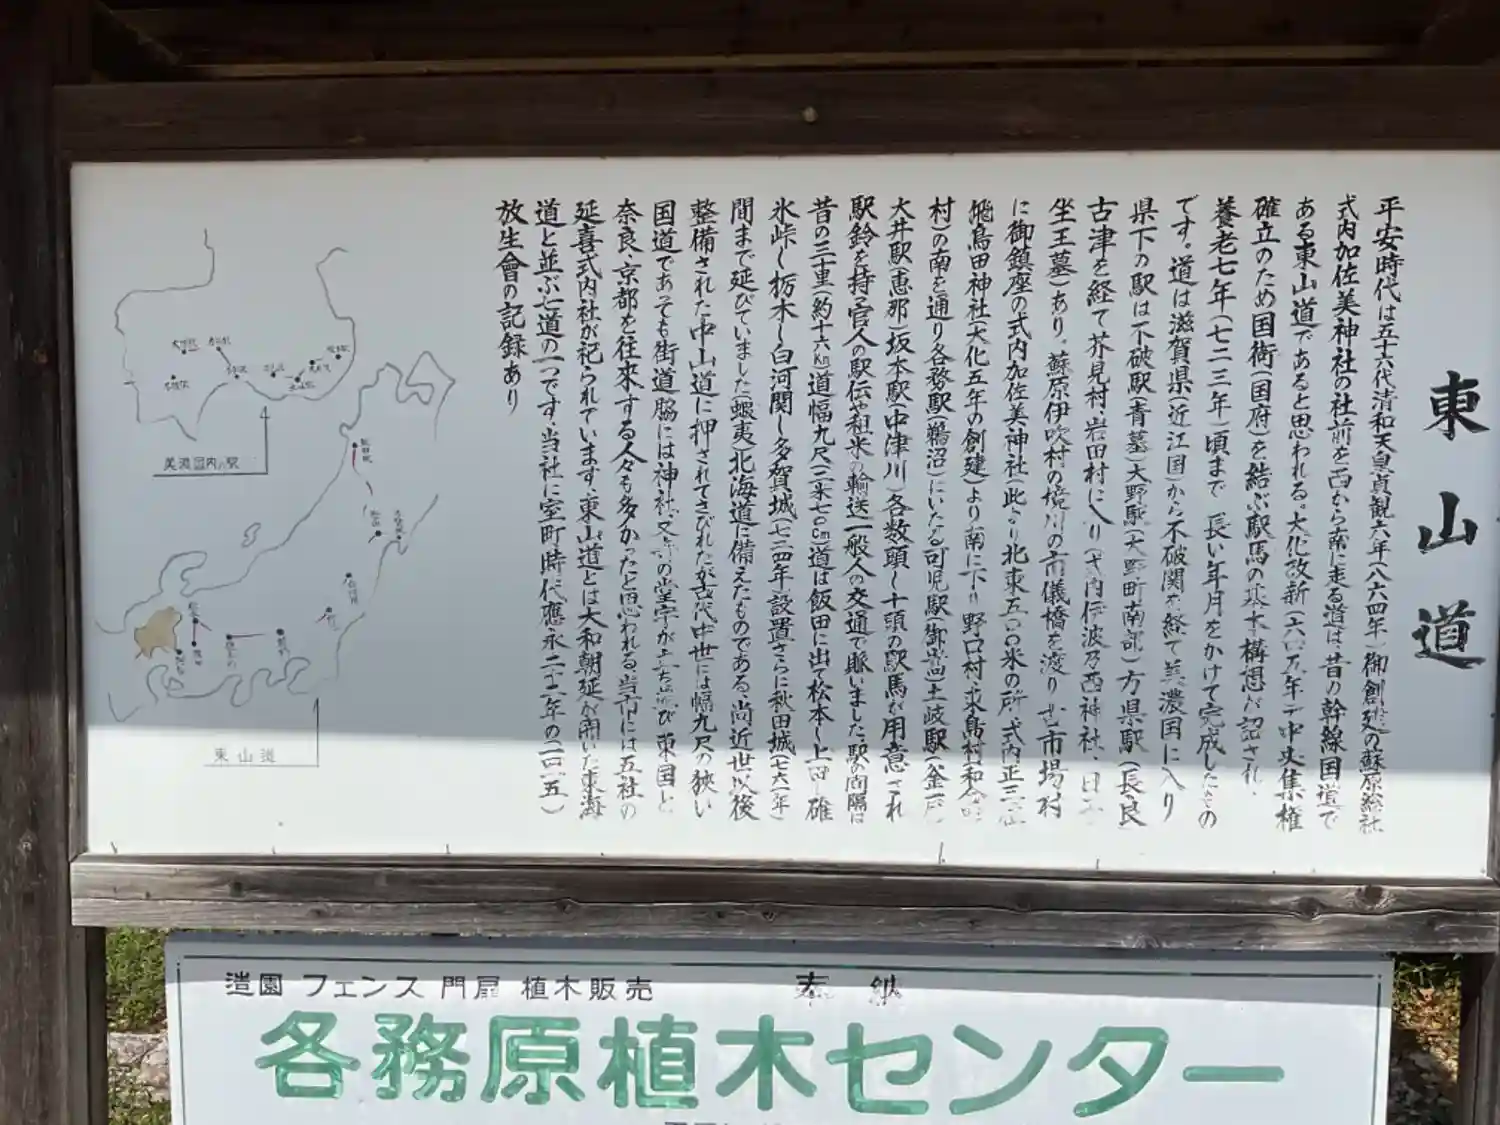 東山道
平安時代は五十六代清和天皇貞観六年(八六四年)御創建の蘇原総社
式内加佐美神社の社前を西から南に走る道は昔の幹線国道で
ある東山道であると思われる。大化改新(六四五年)中央集権
確立のため国衙(国府)を結ぶ駅馬の基本構想が認され
養老七年(七二三年)頃まで長い年月をかけて完成したもの
です。道は滋賀県(近江国)から不破関を経て美濃国に入り
県下の駅は不破駅(青墓)大野駅(大野町南部)方県駅(長良)
古津を経て芥見村、岩田村に入り(式内伊波乃西神社、日
坐王墓)あり。蘇原伊吹村の境川の市儀橋を渡り古市場村
に御鎮座の式内加佐美神社(此より北東五〇〇米の所、式内正三位
飛鳥田神社(大化五年の創建)より南に下り野口村、求島村(和合
村)の南を通り各務駅(鵜沼)にいたる可児駅(御嵩)土岐駅(釜戸)
大井駅(恵那)坂本駅(中津川)各数頭〜十頭の駅馬が用意され
駅鈴を持つ官人の駅伝や租米の輸送一般人の交通で賑いました。駅の間隔は
昔の三十里(約十六㎞)道幅九尺(二米七〇㎝)道は飯田に出て松本〜上田〜碓
氷峠〜栃木〜白河関〜多賀城(七二四年)設置さらに秋田城(七六一年)
間まで延びていました蝦夷(北海道)に備えたものである。尚近世以後
整備された中山道に押されてさびれたが古代中世には幅九尺の狭い
国道であっても街道脇には神社、又寺の堂宇が立ち並び東国と
奈良、京都を往来する人々も多かったと思われる。当市には五社の
延喜式内社が祀られています。東山道とは大和朝廷が開いた東海
道と並ぶ七道の一つです。当社に室町時代應永二十二年の二〇五)
放生會の記録あり
美濃国内の駅
東山道
造園 フェンス 門扉 植木販売
奉納
各務原植木センター